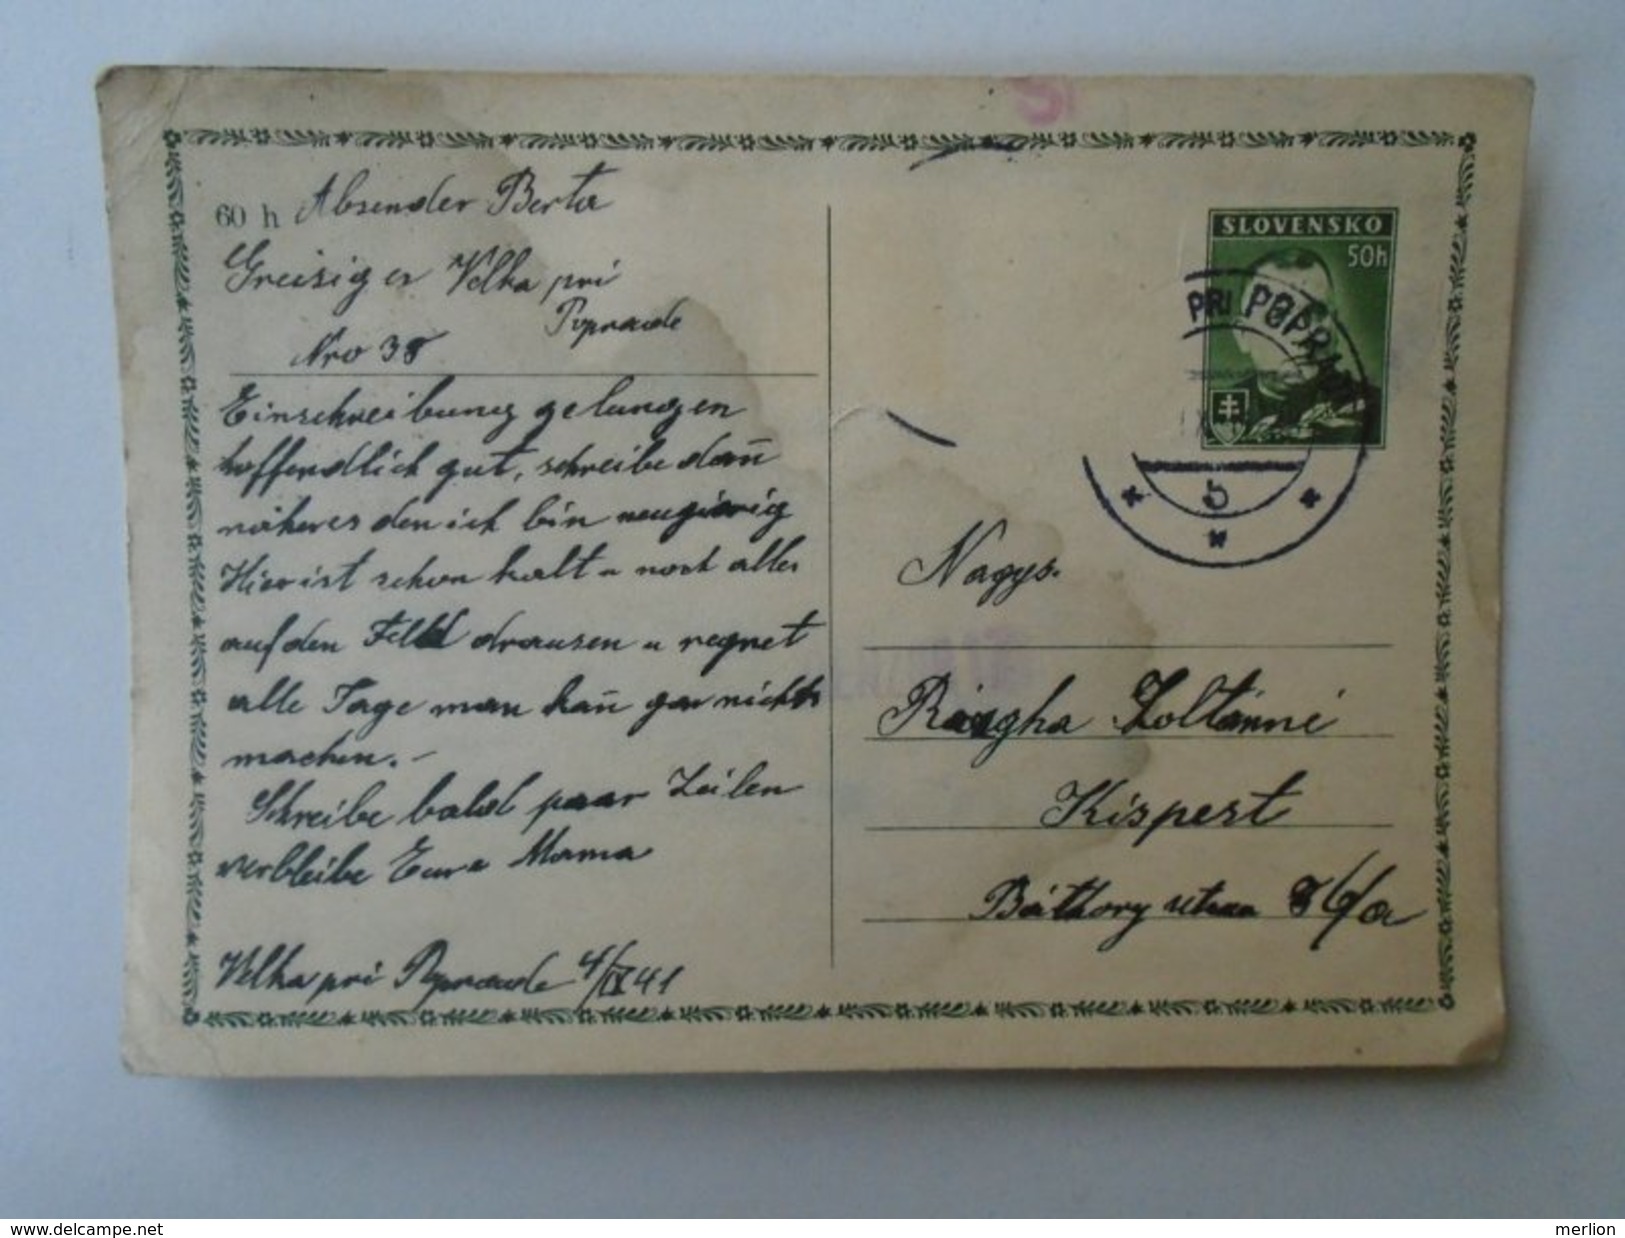 60 h Absender Berta
Greisiger Velka pri
Poprade
Nro 38
Einschreibung gelungen
hoffendlich gut, schreibe dan̄
näheres den ich bin neugierig
Hier ist schon kalt u noch alles
auf den Feld drausen u regnet
alle Tage man kan̄ gar nichts
machen. –
Schreibe bald paar Zeilen
verbleibe Eure Mama
Velka pri Poprade 4/IX 41
SLOVENSKO
50h
PRI POPRADE
b
Nagys.
Zoltánné
Kispest
Báthory utca 36/a
merlion
www.delcampe.net